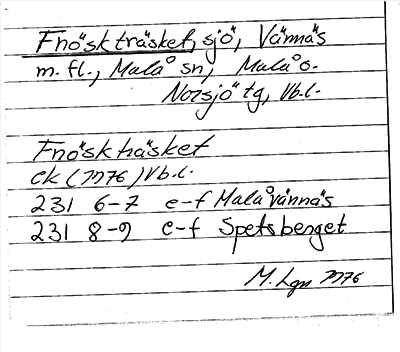 Fnöskträsket, sjö, Vännäs
m.fl., Malå sn, Malå o.
Norsjö tg, Vb.l.
Fnöskträsket
ek (1976) Vb.l.
231 6-7 e-f Malåvännäs
231 8-9 e-f Spetsberget
M. Lgn 1976